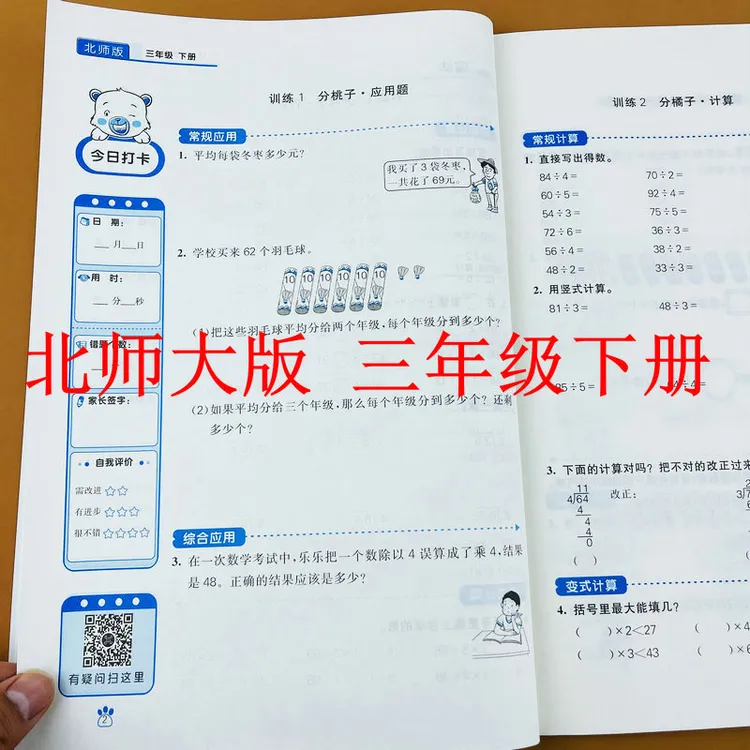 北师版 三年级 下册
今日打卡
日 期：
月 日
用 时：
分 秒
错题个数：
家长签字：
自我评价
需改进 ☆☆
有进步 ☆☆☆
很不错 ☆☆☆☆
有疑问扫这里
2
训练1 分桃子·应用题
常规应用
1. 平均每袋冬枣多少元？
我买了3袋冬枣，
一共花了69元。
2. 学校买来62个羽毛球。
10 10 10 10 10 10
(1)把这些羽毛球平均分给两个年级，每个年级分到多少个？
北师大版 三年级下册
(2)如果平均分给三个年级，那么每个年级分到多少个？还剩
多少个？
综合应用
3. 在一次数学考试中，乐乐把一个数除以4误算成了乘4，结果
是48。正确的结果应该是多少？
训练2 分橘子·计算
常规计算
1. 直接写出得数。
84÷4= 70÷2=
60÷5= 92÷4=
54÷3= 75÷5=
72÷6= 36÷3=
56÷4= 38÷2=
48÷2= 33÷3=
2. 用竖式计算。
81÷3= 48÷3=
85÷5= 84÷4=
3. 下面的计算对吗？把不对的改正过来
11
4 64 改正： 3
4
4
4
0
( ) (
变式计算
4. 括号里最大能填几？
( )×2<27 ( )×4
( )×3<43 ( )×6